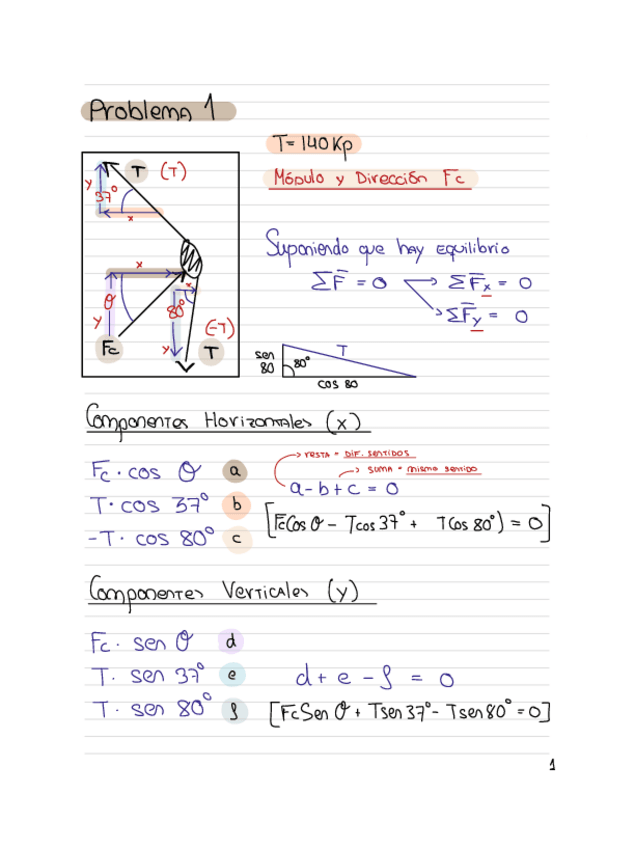 Problema 1
T = 140 Kp
Módulo y Dirección Fc
T (T)
y
37°
x
Suponiendo que hay equilibrio
ΣF = 0
ΣFx = 0
ΣFy = 0
x
θ
x
80°
y
y
(-T)
Fc
T
sen 80
80°
T
cos 80
Componentes Horizontales (x)
Fc · cos θ a
T · cos 37° b
-T · cos 80° c
resta = dif. sentidos
suma = mismo sentido
a - b + c = 0
[Fc Cos θ - T cos 37° + T Cos 80°) = 0]
Componentes Verticales (y)
Fc · sen θ d
T · sen 37° e
T · sen 80° f
d + e - f = 0
[Fc Sen θ + T sen 37° - T sen 80° = 0]
1